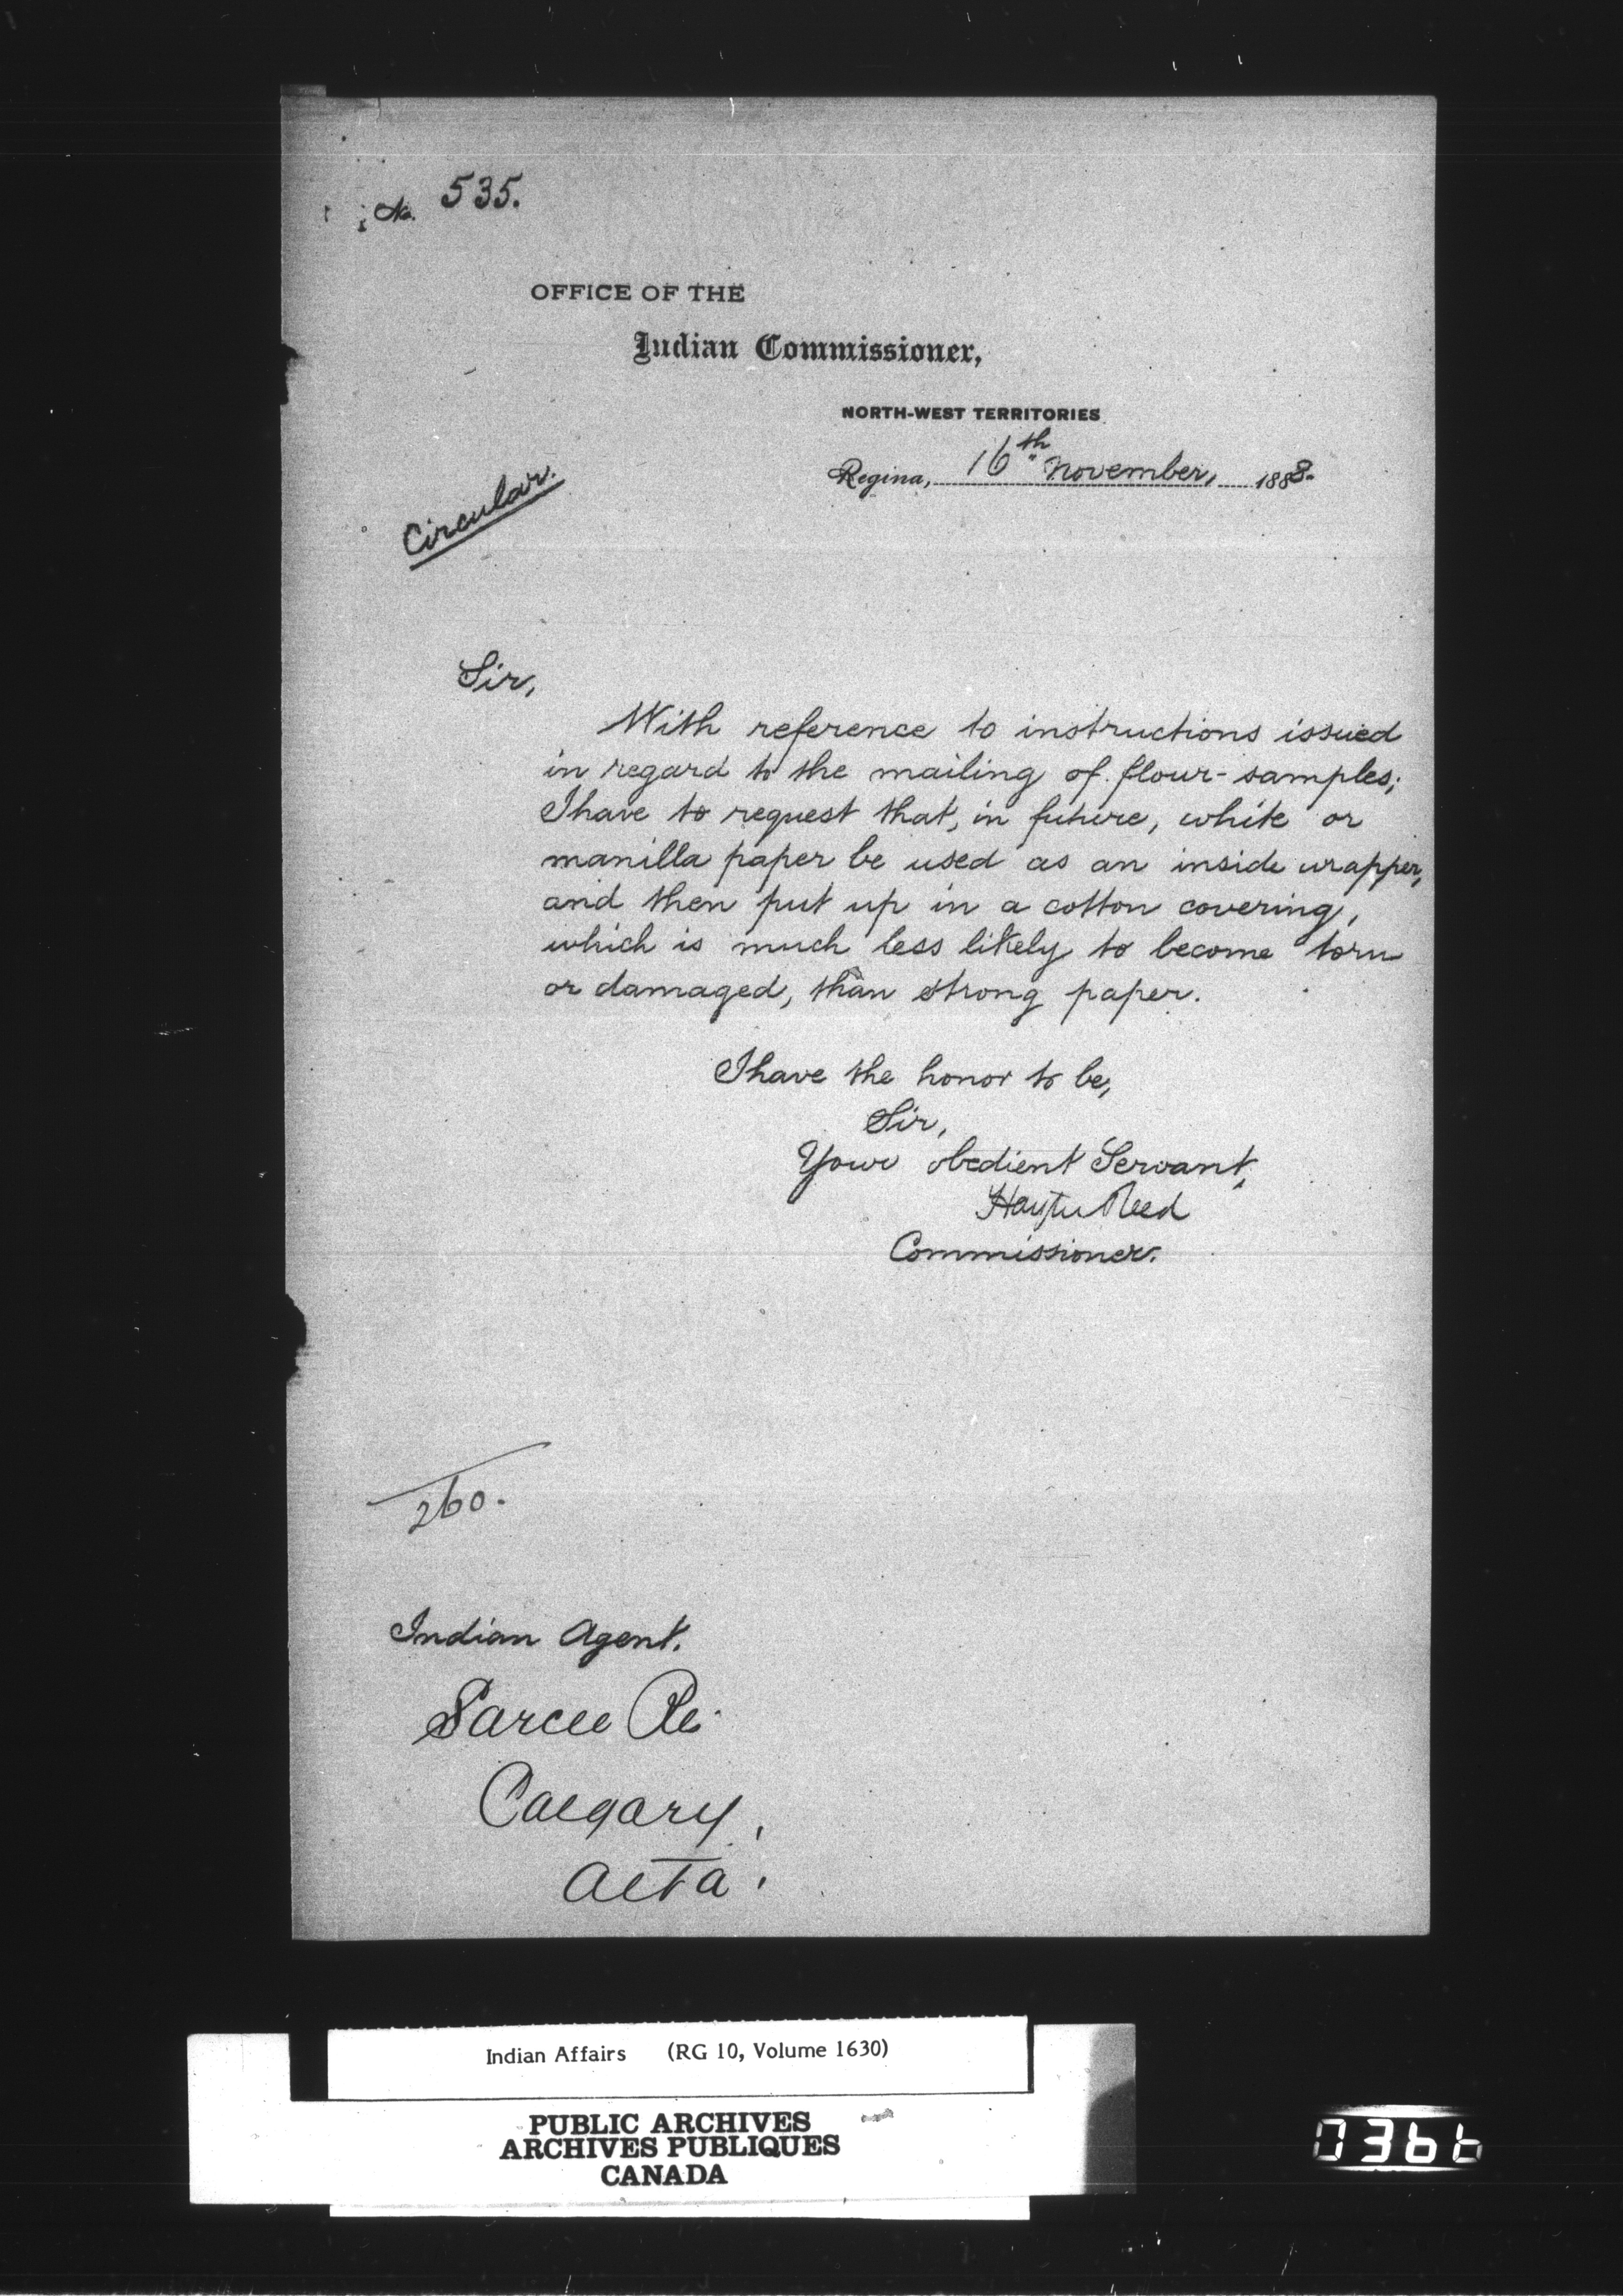 No. 535.
OFFICE OF THE
Indian Commissioner,
NORTH-WEST TERRITORIES
Regina, 16th November, 1888.
Circular.
Sir,
With reference to instructions issued
in regard to the mailing of flour-samples;
I have to request that, in future, white or
manilla paper be used as an inside wrapper,
and then put up in a cotton covering,
which is much less likely to become torn
or damaged, than strong paper.
I have the honor to be,
Sir,
Your obedient Servant,
Hayter Reed
Commissioner.
260.
Indian Agent.
Sarcee Re.
Calgary,
Alta.
Indian Affairs (RG 10, Volume 1630)
PUBLIC ARCHIVES
ARCHIVES PUBLIQUES
CANADA
0366